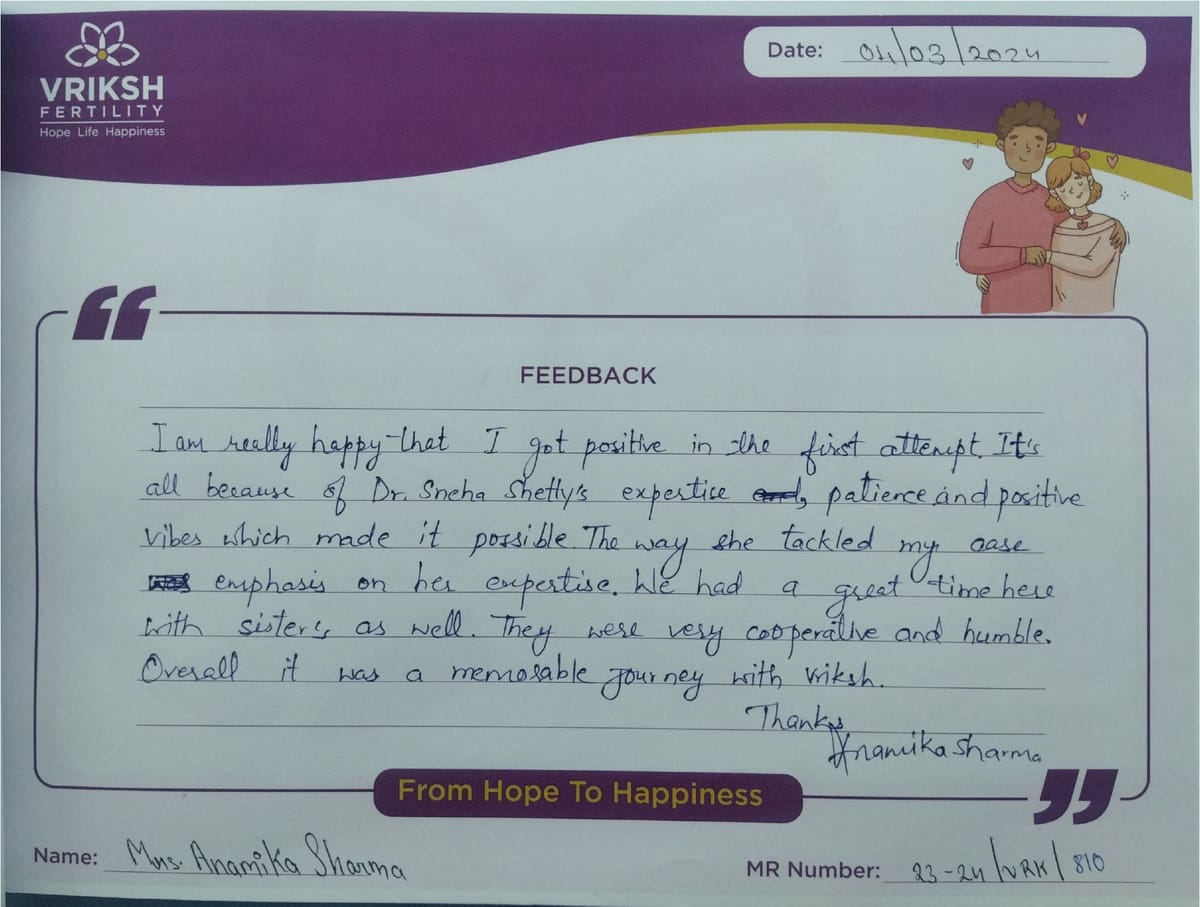 VRIKSH
FERTILITY
Hope Life Happiness
Date: 04/03/2024
FEEDBACK
I am really happy that I got positive in the first attempt. It's
all because of Dr. Sneha Shetty's expertise, patience and positive
vibes which made it possible. The way she tackled my case
emphasis on her expertise. We had a great time here
with sister's as well. They were very cooperative and humble.
Overall it was a memorable journey with vriksh.
Thanks
Anamika Sharma
From Hope To Happiness
Name: Mrs. Anamika Sharma
MR Number: 23-24/VRK/810